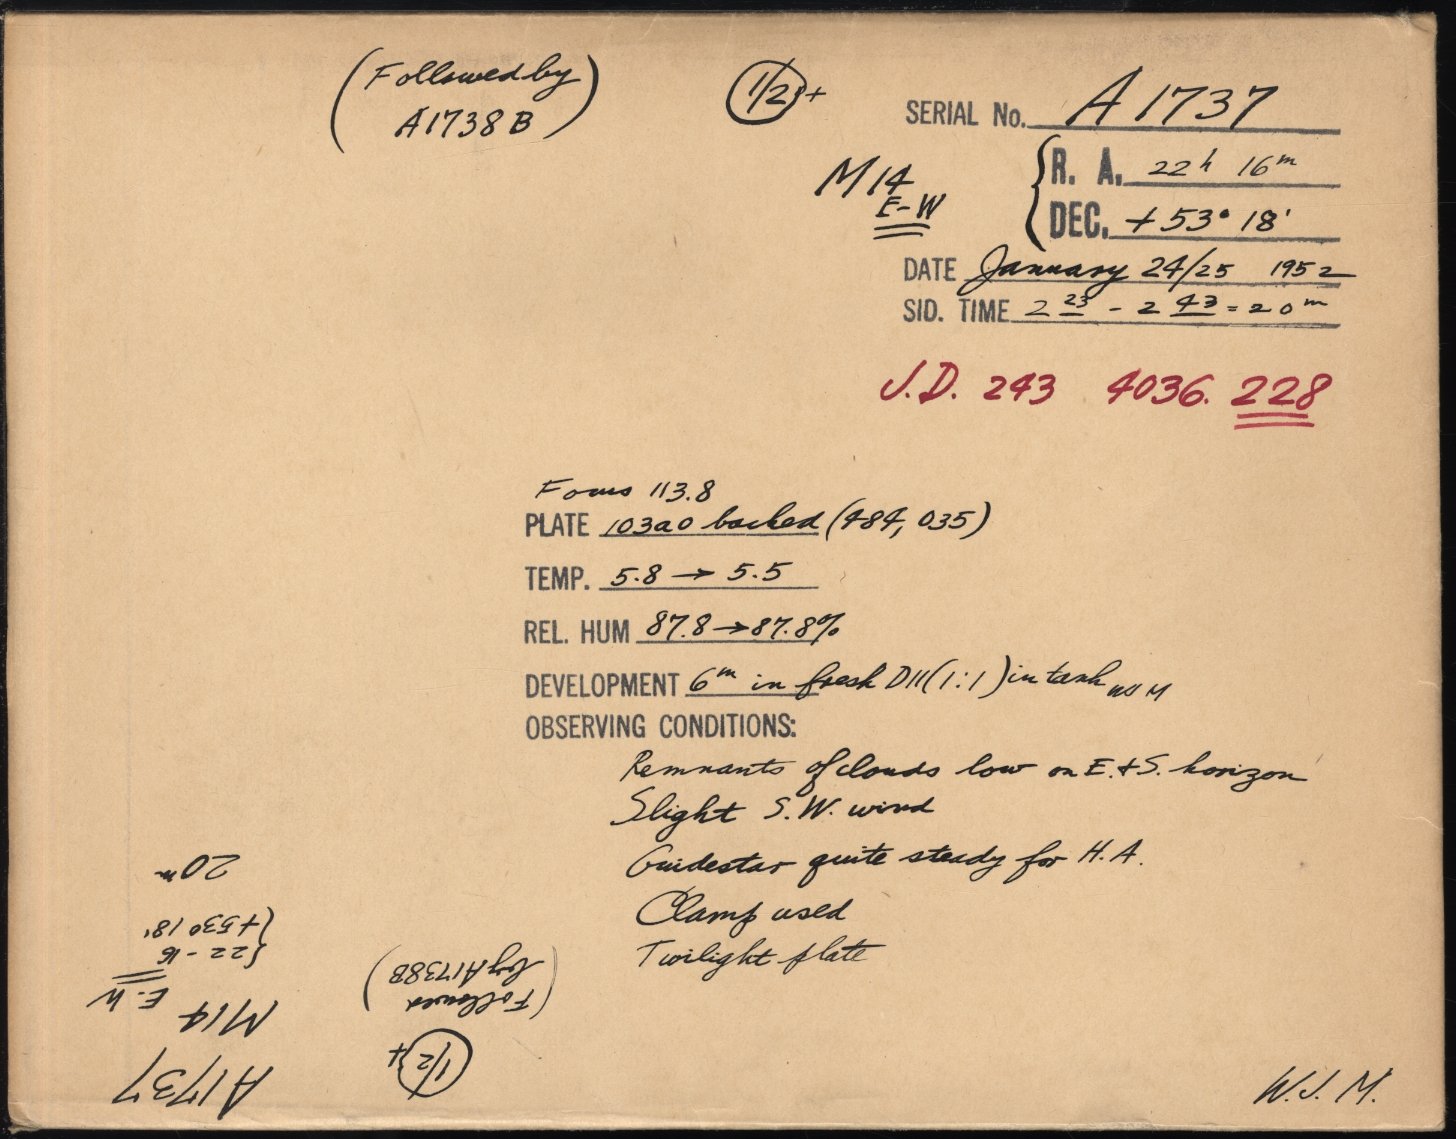 (Followed by
A1738B)
1/2 +
SERIAL No. A1737
M14
E-W
R. A. 22h 16m
DEC. +53° 18'
DATE January 24/25 1952
SID. TIME 2 23 - 2 43 = 20m
J.D. 243 4036.228
Focus 113.8
PLATE 103aO backed (484, 035)
TEMP. 5.8 → 5.5
REL. HUM 87.8 → 87.8%
DEVELOPMENT 6m in fresh D11 (1:1) in tank WJM
OBSERVING CONDITIONS:
Remnants of clouds low on E. & S. horizon
Slight S.W. wind
Guidestar quite steady for H.A.
Clamp used
Twilight plate
W.J.M.
A1737
M14
E-W
{22-16
{+53° 18'
20m
1/2 +
(Followed
by A1738B)